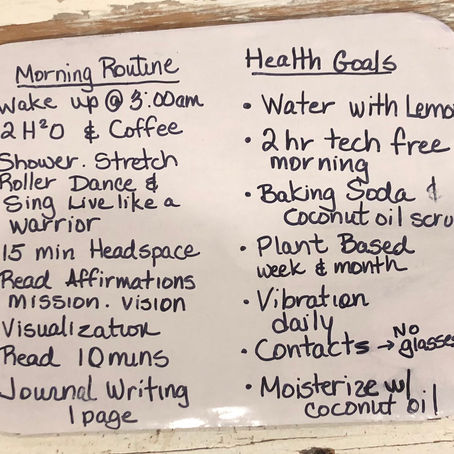 Morning Routine
Wake up @ 3:00am
2 H²O & Coffee
Shower. Stretch
Roller Dance &
Sing Live like a
warrior
15 min Headspace
Read Affirmations
mission. vision
Visualization
Read 10 mins
Journal Writing
1 page
Health Goals
• Water with Lemo
• 2 hr tech free
morning
• Baking Soda &
coconut oil scru
• Plant Based
week & month
• Vibration
daily
• Contacts → No
glasses
• Moisterize w/
coconut oil